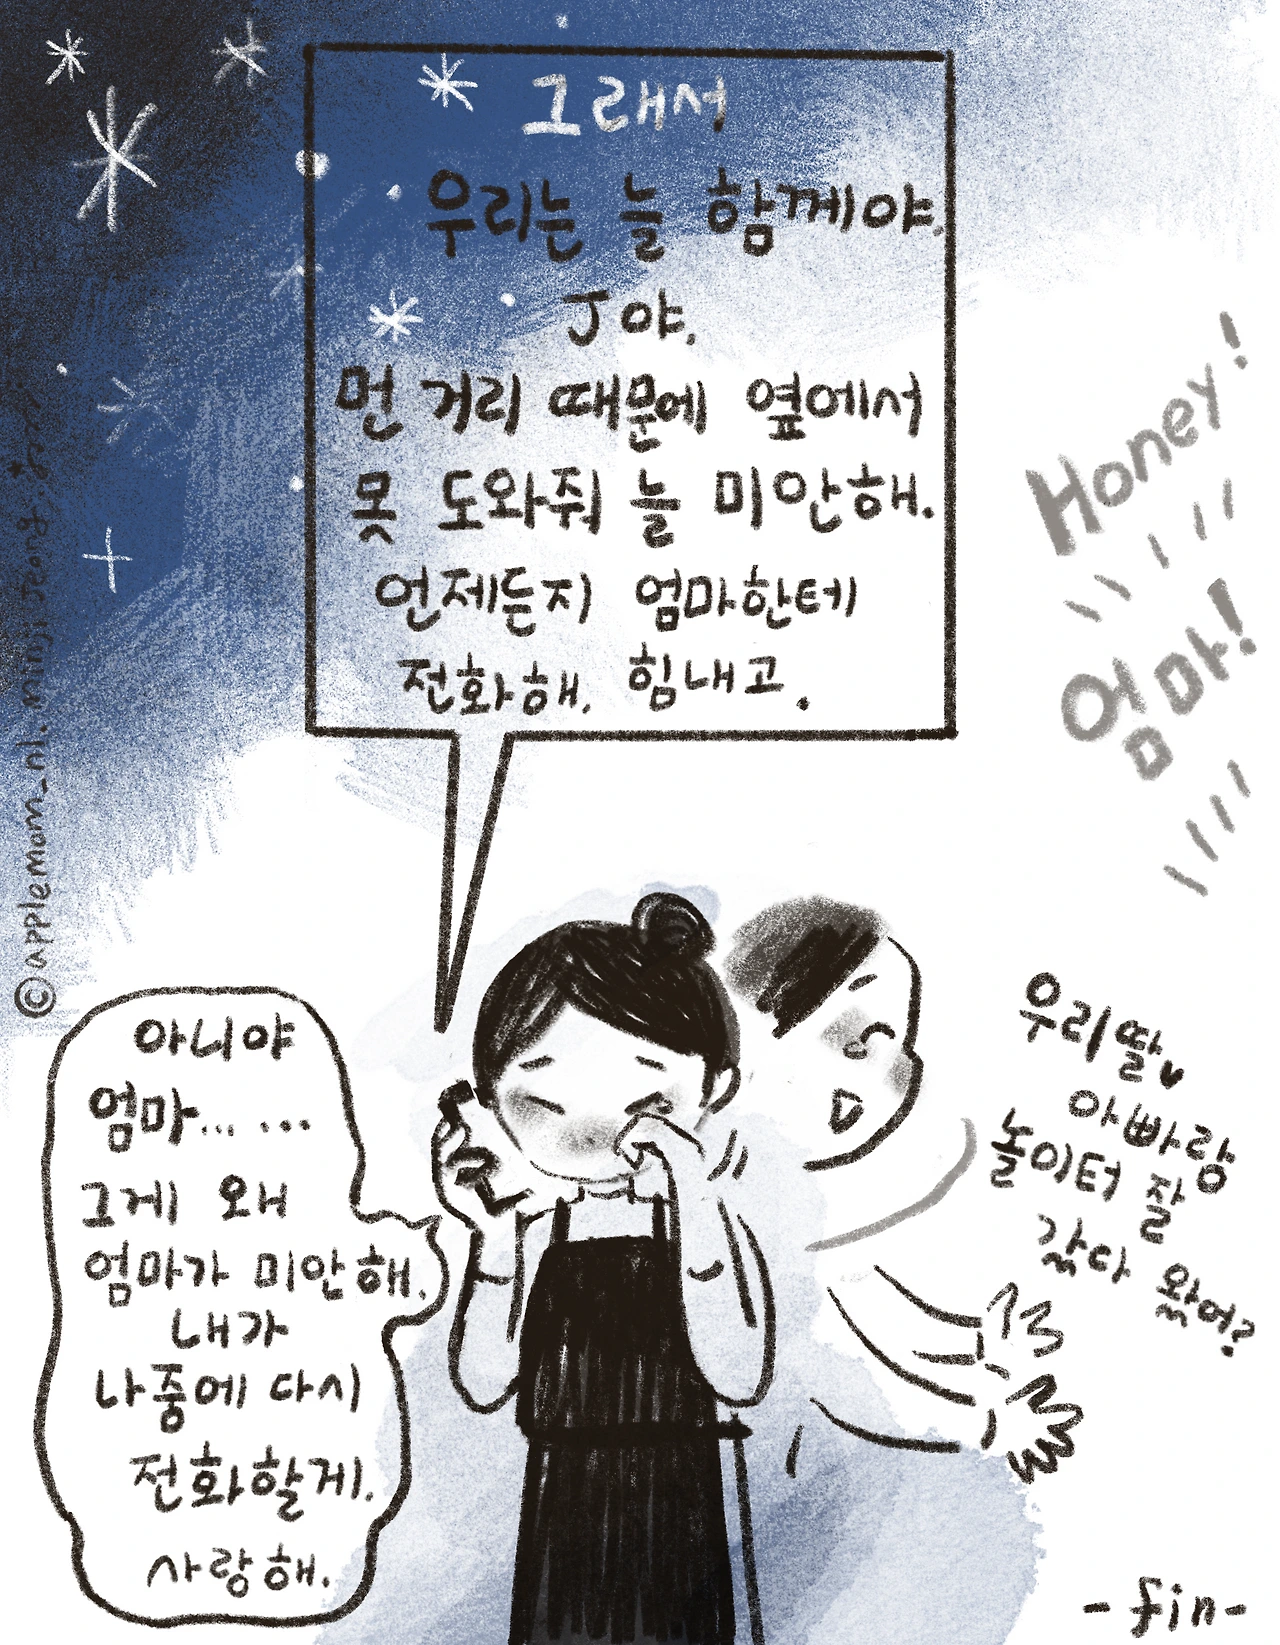 그래서
우리는 늘 함께야.
J야.
먼 거리 때문에 옆에서
못 도와줘 늘 미안해.
언제든지 엄마한테
전화해. 힘내고.
Honey!
엄마!
아니야
엄마... ...
그게 왜
엄마가 미안해.
내가
나중에 다시
전화할게.
사랑해.
우리딸♥
아빠랑
놀이터 잘
갔다 왔어?
-fin-
©applemom_nl. minji jeong.